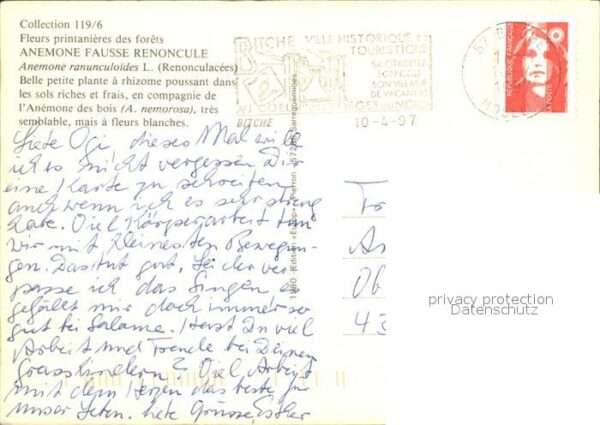 Collection 119/6
Fleurs printanières des forêts
ANEMONE FAUSSE RENONCULE
Anemone ranunculoïdes L. (Renonculacées)
Belle petite plante à rhizome poussant dans
les sols riches et frais, en compagnie de
l'Anémone des bois (A. nemorosa), très
semblable, mais à fleurs blanches.
BITCHE VILLE HISTORIQUE ET
TOURISTIQUE
SA CITADELLE
SON GOLF
SON VILLAGE
DE VACANCES
AU COEUR DES VOSGES DU NORD
BITCHE
10-4-97
57
MOSELLE
RÉPUBLIQUE FRANÇAISE
LA POSTE
dieses Mal will
ich es nicht vergessen Dir
eine Karte zu schreiben
auch wenn ich es sehr streng
habe. Viel Körperarbeit tun
wir mit kleinesten Bewegun-
gen. Das tut gut. Leider ver-
passe ich das Singen es
gefällt mir doch immer so
gut bei Salome. Hast Du viel
Arbeit und Freude bei Deinen
Grosskindern? Viel Arbeit
mit dem Herzen das beste für
unser Leben. liebe Grüsse, Esther
Ob
43
privacy protection
Datenschutz